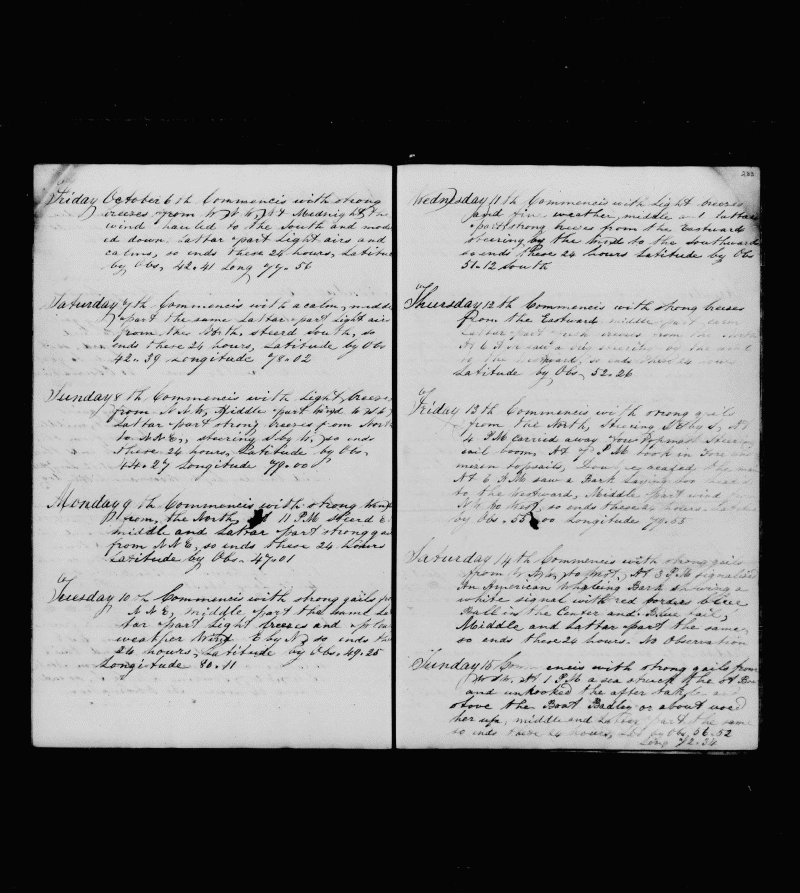 Friday October 6th Commencis with strong
breeses from
wind hauled to the South and mod
ed down. Lattar part Light airs and
calms, so ends these 24 hours, Latitude
by Obs, 42.41 Long 77.56
Saturday 7th Commencis with a calm, middle
part the same Lattar part Light airs
from the North, steerd South, so
ends these 24 hours, Latitude by Obs
42.39 Longitude 78.02
Sunday 8th Commencis with Light breeses
from N.N.W, Middle part Wind
Lattar part strong breeses from North
to N.N.E, steering S by W, so ends
these 24 hours, Latitude by Obs.
44.27 Longitude 79.00
Monday 9th Commencis with strong wind
from the North, At 11 PM steerd
middle and Lattar part strong
from N.N.E, so ends these 24 hours
Latitude by Obs. 47.01
Tuesday 10th Commencis with strong gails
N.N.E, Middle part the same
tar part Light breeses and
weather Wind E by N, so ends
24 hours, Latitude by Obs, 49.25
Longitude 80.11
Wednesday 11th Commencis with Light breeses
and fine weather, middle and lattar
part strong breeses from the Eastward
veering by the wind to the southward
so ends these 24 hours Latitude by Obs
51.12 South
Thursday 12th Commencis with strong breeses
from the Eastward middle part
Lattar part from the
so ends these 24 hours
Latitude by Obs, 52.26
Friday 13th Commencis with strong gails
from the North, Steering S At
4 PM carried away fore Topmast Steering
sail boom, At 7 PM took in fore and
topsails,
At 6 PM saw a Bark
to the Westward, Middle part wind
so ends these 24 hours.
by Obs. 55.00 Longitude
Saturday 14th Commencis with strong gails
from At 3 PM signalised
An American Whaleing Bark showing a
white signal with red borders blue
Ball in the Center and Blue tail,
Middle and Lattar part the same,
so ends these 24 hours. No Observation
Sunday 15 Commencis with strong gails from
At 1 PM a sea struck the
and unhooked the after takle and
stove the Boat Badley or about used
her up, middle and Lattar part the same
so ends these 24 hours, Lat by Obs 56.52
Long 72.34